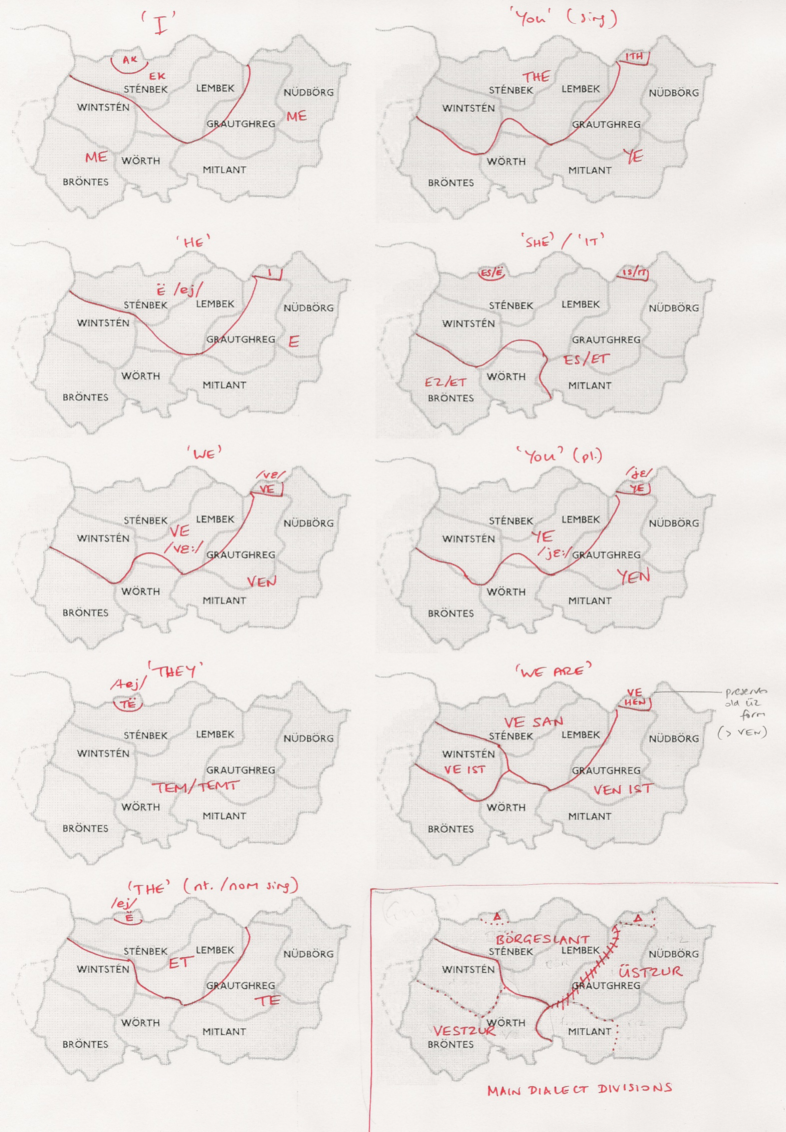 'I'
AK
EK
STËNBEK
LEMBEK
NÜDBÖRG
WINTSTËN
GRAUTGHREG
ME
ME
WÖRTH
MITLANT
BRÖNTES
'YOU' (sing)
ITH
THE
STËNBEK
LEMBEK
NÜDBÖRG
WINTSTËN
GRAUTGHREG
YE
WÖRTH
MITLANT
BRÖNTES
'HE'
I
Ë /ej/
STËNBEK
LEMBEK
NÜDBÖRG
WINTSTËN
GRAUTGHREG
E
WÖRTH
MITLANT
BRÖNTES
'SHE' / 'IT'
ES/Ë
IS/IT
STËNBEK
LEMBEK
NÜDBÖRG
WINTSTËN
GRAUTGHREG
ES/ET
EZ/ET
WÖRTH
MITLANT
BRÖNTES
'WE'
/vɛ/
VE
STËNBEK
LEMBEK
NÜDBÖRG
VE
/vɛ:/
WINTSTËN
GRAUTGHREG
VEN
WÖRTH
MITLANT
BRÖNTES
'YOU' (pl.)
/jɛ/
YE
STËNBEK
LEMBEK
NÜDBÖRG
YE
/jɛ:/
WINTSTËN
GRAUTGHREG
YEN
WÖRTH
MITLANT
BRÖNTES
'THEY'
TË
STËNBEK
LEMBEK
NÜDBÖRG
WINTSTËN
GRAUTGHREG
TEM/TEMT
WÖRTH
MITLANT
BRÖNTES
'WE ARE'
VE
HEN
preserves
old üz
form
(> VEN)
VE SAN
STËNBEK
LEMBEK
NÜDBÖRG
WINTSTËN
VE IST
GRAUTGHREG
VEN IST
WÖRTH
MITLANT
BRÖNTES
'THE' (nt. /nom sing)
/ej/
Ë
STËNBEK
LEMBEK
NÜDBÖRG
ET
WINTSTËN
GRAUTGHREG
TE
WÖRTH
MITLANT
BRÖNTES
BÖRGESLANT
STËNBEK
LEMBEK
NÜDBÖRG
WINTSTËN
ÜSTZUR
GRAUTGHREG
VESTZUR
WÖRTH
MITLANT
BRÖNTES
MAIN DIALECT DIVISIONS